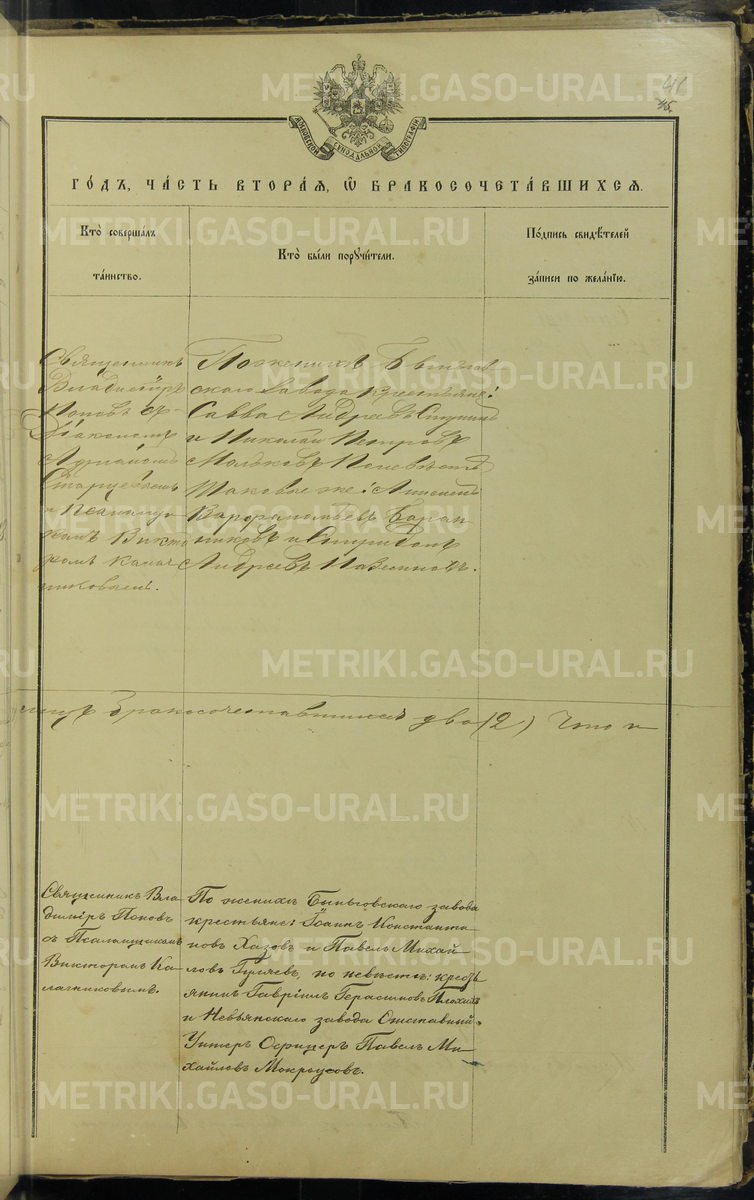 METRIKI.GASO-URAL.RU
46
45.
МОСКОВСКОЙ СѴНОДАЛЬНОЙ ТИПОГРАФІИ
ГО́ДЪ, ЧА́СТЬ ВТОРА́Я, Ѽ БРАКОСОЧЕТА́ВШИХСЯ.
Кто̀ соверша́лъ
та́инство.
Кто̀ бы́ли поручи́тели.
По́дпись свидѣ́телей
за́писи по жела́нїю.
Священникъ
Владиміръ
Поповъ съ
Діакономъ
Старцевымъ
и Псаломщи-
комъ Викто
ромъ Калач
никовымъ.
По женихѣ Бынгов
скаго завода крестьяне:
Савва Андреевъ
и Николай Петровъ
по невѣстѣ
таковые же:
Варфоломѣевъ
и Спиридонъ
Андреевъ
бракосочетавшихся два (2) Что и
Священникъ Вла-
диміръ Поповъ
съ Псаломщикомъ
Викторомъ Ка-
лачниковымъ.
По женихѣ Быньговскаго завода
крестьяне: Іоаннъ Константи
новъ Хазовъ и Павелъ Михай
ловъ Гуляевъ, по невѣстѣ: кресть
янинъ Гавріилъ Герасимовъ Плохихъ
и Невьянскаго завода Отставный
Унтеръ Офицеръ Павелъ Ми-
хайловъ Мокроусовъ.